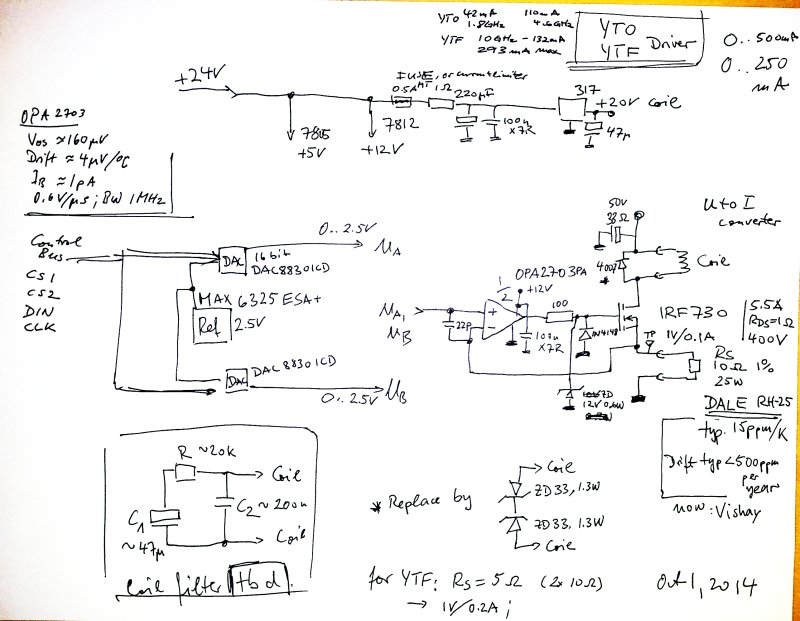 YTO 42mA 110mA
1.8GHz 4.6GHz
YTF 10GHz - 132mA
293mA max
YTO
YTF Driver
0..500mA
0..250
mA
+24V
FUSE, or currentlimiter
0.5A MT 1Ω
220µF
317
+20V Coil
7805
+5V
7812
+12V
100n
X7R
47µ
OPA2703
Vos ≈160µV
Drift ≈ 4µV/°C
IB ≈ 1pA
0.6V/µs; BW 1MHz
Control
Bus
CS1
CS2
DIN
CLK
DAC
16bit
DAC8830ICD
0..2.5V
UA
MAX 6325 ESA+
Ref
2.5V
DAC
DAC8830ICD
0..2.5V
UB
50V
33Ω
U to I
converter
4007
*
Coil
1/2
OPA2703PA
+12V
UA,
UB
22p
+
-
100
100n
X7R
1N4148
IRF730
5.5A
RDS=1Ω
400V
TP
1V/0.1A
RS
10Ω 1%
25W
ZD
12V 0.6W
DALE RH-25
typ. 15ppm/K
Drift typ <500ppm
per
year
now: Vishay
R ~20K
C1
~47µ
C2 ~ 200n
Coil
Coil
Coil filter tbd.
* Replace by
Coil
ZD33, 1.3W
ZD33, 1.3W
Coil
for YTF: RS = 5Ω (2x 10Ω)
→ 1V/0.2A;
Oct 1, 2014